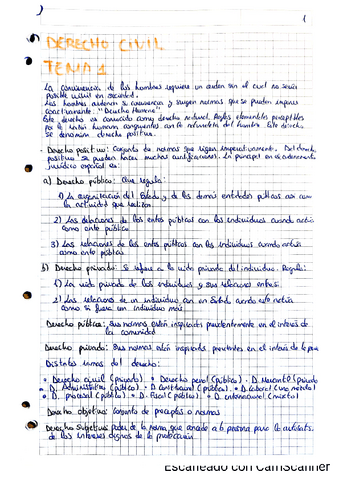 1
DERECHO CIVIL
TEMA 1
La convivencia de los hombres requiere un orden sin el cual no sería
posible vivir en sociedad.
Los hombres ordenan su convivencia y surgen normas que se pueden imponer
coactivamente: "Derecho Humano"
Este derecho es conocido como derecho natural. Reglas elementales perceptibles
por la razón humana congruentes con la naturaleza del hombre. Este derecho
se denomina derecho positivo.
- Derecho positivo: Conjunto de normas que rigen imperativamente. Del derecho
positivo se pueden hacer muchas clasificaciones. La principal en el ordenamiento
jurídico español es:
a) Derecho público: Que regula:
1) La organización del Estado y de las demás entidades públicas así como
la actividad que realizan
2) Las relaciones de los entes públicos con los individuos cuando actúa
como ente público
3) Las relaciones de los entes públicos con los individuos cuando actúa
como ente público
b) Derecho privado: Se refiere a la vida privada del individuo. Regula:
1) La vida privada de los individuos y sus relaciones entre sí.
2) Las relaciones de un individuo con un Estado cuando este actúa
como si fuera un individuo más
Derecho público: Sus normas están inspiradas preeminentemente en el interés de
la comunidad
Derecho privado: Sus normas están inspiradas en el interés de la
Distintas ramas del derecho:
• Derecho civil (privado) • Derecho penal (público) • D. Mercantil (privado)
• D. Administrativo (público) • D. (público) • D. laboral (una mixta)
• D. procesal (público) • D. Fiscal (público) • D. internacional (mixto)
Derecho objetivo: Conjunto de preceptos o normas
Derecho Subjetivo: Poder de la norma que concede a la persona para la
de los intereses dignos de la protección.
Escaneado con CamScanner